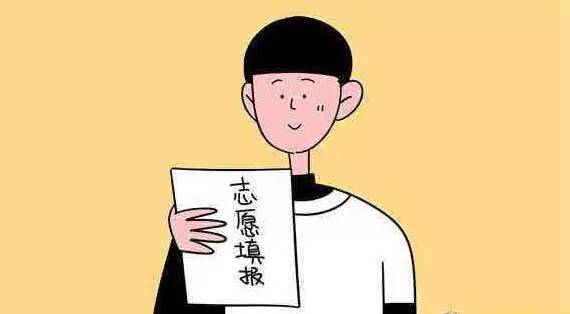 志愿填报